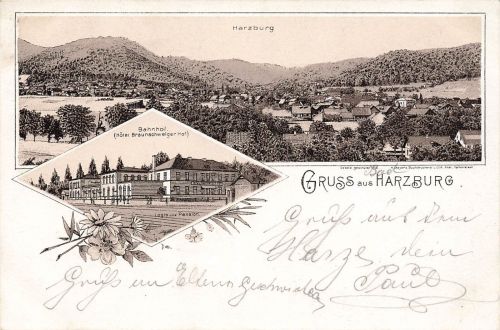 Harzburg
Bahnhof
(Hôtel Braunschweiger Hof)
Logis und Pension
GRUSS AUS HARZBURG.
Gruß aus dem
Harze dein
Paul
Gruß an Eltern Geschwister